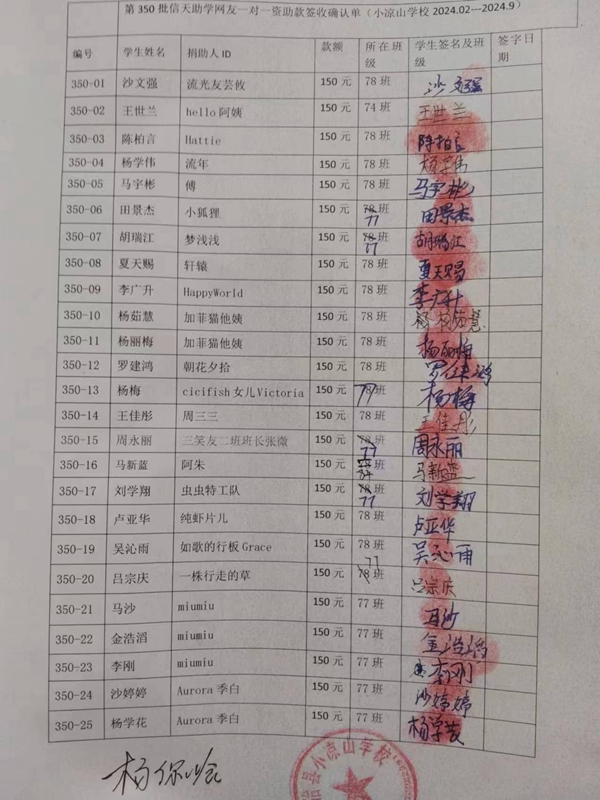 第 350 批信天助学网友一对一资助款签收确认单（小凉山学校 2024.02---2024.9）
编号 学生姓名 捐助人 ID 款额 所在班级 学生签名及班级 签字日期
350-01 沙文强 流光友芸攸 150 元 78 班 沙文强
350-02 王世兰 hello 阿姨 150 元 74 班 王世兰
350-03 陈柏言 Hattie 150 元 78 班 陈柏言
350-04 杨学伟 流年 150 元 78 班 杨学伟
350-05 马宇彬 傅 150 元 78 班 马宇彬
350-06 田景杰 小狐狸 150 元 78 班 77 田景杰
350-07 胡瑞江 梦浅浅 150 元 78 班 77 胡瑞江
350-08 夏天赐 轩辕 150 元 78 班 夏天赐
350-09 李广升 HappyWorld 150 元 78 班 李广升
350-10 杨茹慧 加菲猫他姨 150 元 78 班 杨茹慧
350-11 杨丽梅 加菲猫他姨 150 元 78 班 杨丽梅
350-12 罗建鸿 朝花夕拾 150 元 78 班 罗建鸿
350-13 杨梅 cicifish 女儿 Victoria 150 元 78 班 77 杨梅
350-14 王佳彤 周三三 150 元 78 班 王佳彤
350-15 周永丽 三笑友二班班长张微 150 元 78 班 77 周永丽
350-16 马新蓝 阿朱 150 元 班 马新蓝
350-17 刘学翔 虫虫特工队 150 元 78 班 77 刘学翔
350-18 卢亚华 纯虾片儿 150 元 78 班 卢亚华
350-19 吴沁雨 如歌的行板 Grace 150 元 78 班 吴沁雨
350-20 吕宗庆 一株行走的草 150 元 78 班 77 吕宗庆
350-21 马沙 miumiu 150 元 77 班 马沙
350-22 金浩滔 miumiu 150 元 77 班 金浩滔
350-23 李刚 miumiu 150 元 77 班 李刚
350-24 沙婷婷 Aurora 季白 150 元 77 班 沙婷婷
350-25 杨学花 Aurora 季白 150 元 77 班 杨学花
县小凉山学校